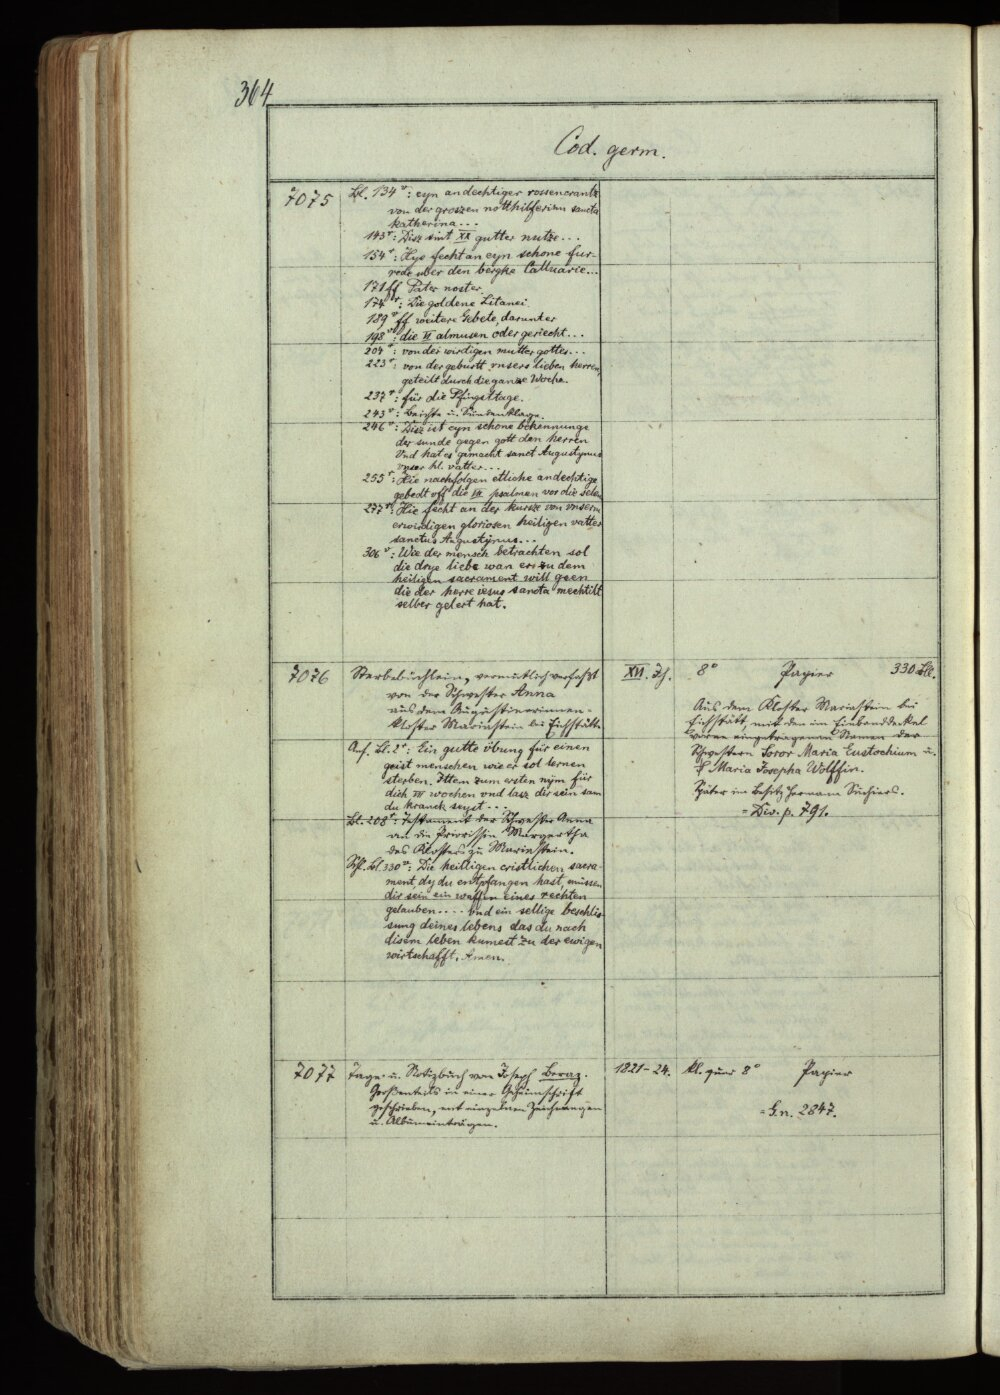 364
Cod. germ.
7075 Bl. 134v: eyn andechtiger rossencrantz
von der groszen notthilferinn sancta
katherina...
143v: Disz sint XX gutter nutze...
154r: Hye fecht an eyn schone fur-
rede uber den bergke Calluarie...
171 ff Pater noster.
174r: Die goldene Litanei.
189v ff weitere Gebete, darunter
198v: die VI almusen oder geriecht...
204r: von der wirdigen mutter gottes...
223r: von der geburtt vnsers lieben herren,
geteilt durch die ganze Woche.
237r: für die Pfingsttage.
243r: Beichte u. Sündenklage.
246v: Disz ist eyn schone bekennunge
der sunde gegen gott den herren
Vnd hat es gemacht sanct Augustynus
vnser hl. vatter...
255r: Hie nachfolgen ettliche andechtige
gebedt vff die VII psalmen vor die selen
277v: Hie fecht an der kursze von vnserm
erwirdigen gloriosen heiligen vatter
sanctus Augustynus...
306v: Wae der mensch betrachten sol
die drye liebe wan er zu dem
heiligen sacrament will geen
die der herre iesus sancta mechtilt
selber gelert hat.
7076 Sterbebüchlein, vermutlich verfaßt XVI. Jh. 8° Papier 330 Bll.
von der Schwester Anna
aus dem Augustinerinnen-
kloster Mariastein bei Eichstätt.
Anf. Bl. 2r: Ein gutte übung für einen
geist menschen wie er sol lernen
sterben. Ittem zum ersten nym für
dich VII wochen vnd lasz dir sein sam
du kranck seyst...
Bl. 208r: Testament der Schwester Anna
an die Priorissin Margertha
des Klosters zu Mariastein.
Schl. Bl. 330v: Die heilligen cristlichen sacra-
ment, dy du entpfangen hast, müssen
dir sein ein waffen eines rechten
gelauben.... vnd ein sellige beschlis-
sung deines lebens das du nach
disem leben kumest zu der ewigen
wirtschafft. Amen.
Aus dem Kloster Mariastein bei
Eichstätt, mit den im Einbanddeckel
vorne eingetragenen Namen der
Schwestern Soror Maria Eustochium u.
S Maria Josepha Wolffin.
Später im Besitz Hermann Suchiers.
= Div. p. 791.
7077 Tage- u. Notizbuch von Joseph Beraz. 1821-24. kl. quer 8° Papier
Großenteils in einer Geheimschrift
geschrieben, mit einzelnen Zeichnungen
u. Albumeinträgen.
= G.n. 2847.